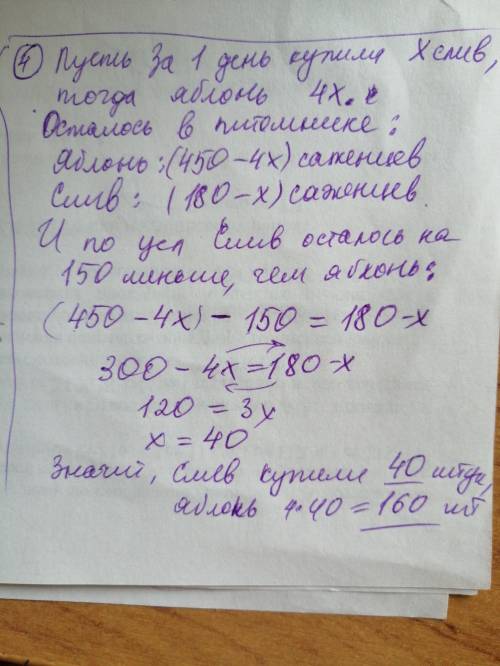 ④ Пусть за 1 день купили X слив,
тогда яблонь 4X.
Осталось в питомнике:
Яблонь: (450-4x) саженцев
Слив: (180-x) саженцев.
И по усл слив осталось на
150 меньше, чем яблонь:
(450-4x)-150=180-x
300-4x=180-x
120=3x
x=40
Значит, слив купили 40 штук,
яблонь 4·40=160 шт